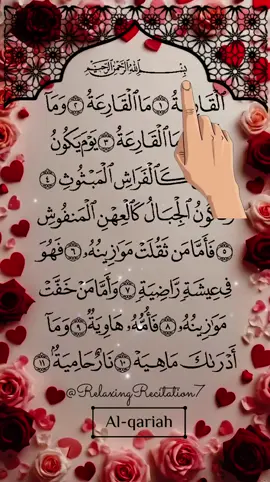 بِسْمِ اللَّهِ الرَّحْمَٰنِ الرَّحِيمِ
الْقَارِعَةُ ١ مَا الْقَارِعَةُ ٢ وَمَا
مَا الْقَارِعَةُ ٣ يَوْمَ يَكُونُ
كَالْفَرَاشِ الْمَبْثُوثِ ٤
وَتَكُونُ الْجِبَالُ كَالْعِهْنِ الْمَنفُوشِ
٥ فَأَمَّا مَن ثَقُلَتْ مَوَازِينُهُ ٦ فَهُوَ
فِي عِيشَةٍ رَّاضِيَةٍ ٧ وَأَمَّا مَنْ خَفَّتْ
مَوَازِينُهُ ٨ فَأُمُّهُ هَاوِيَةٌ ٩ وَمَا
أَدْرَاكَ مَا هِيَهْ ١٠ نَارٌ حَامِيَةٌ ١١
@RelaxingRecitation7
Al-qariah